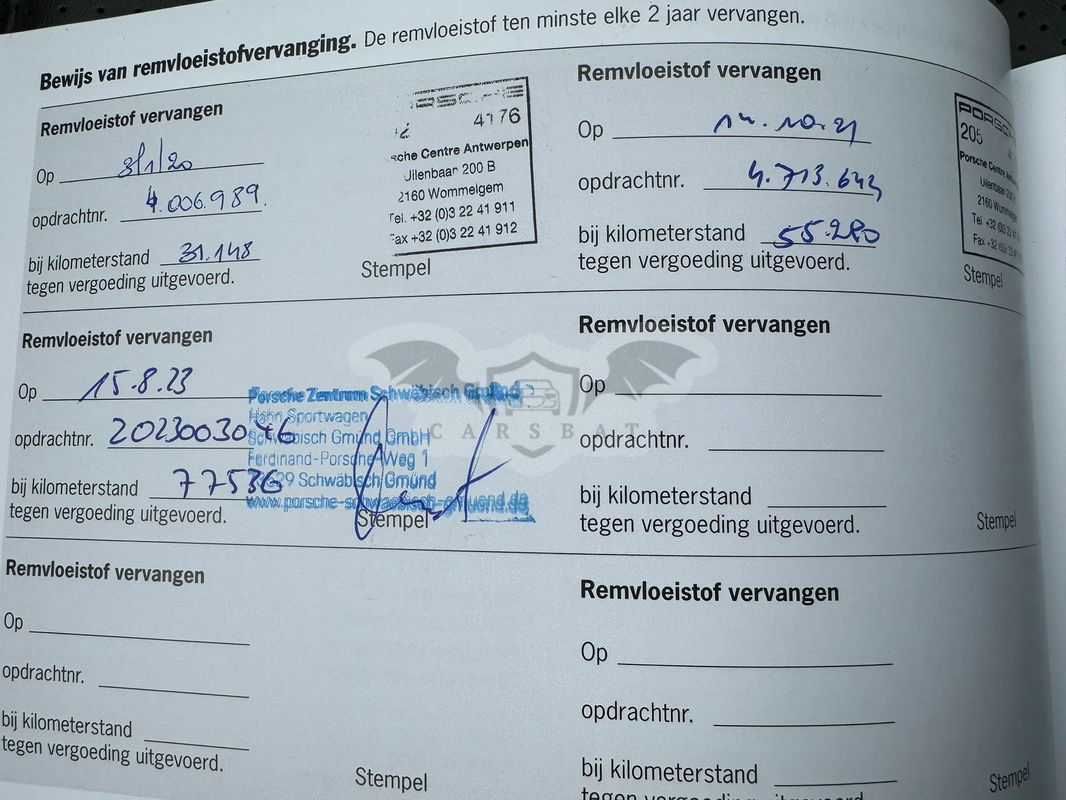 Bewijs van remvloeistofvervanging. De remvloeistof ten minste elke 2 jaar vervangen.
Remvloeistof vervangen
Op 3/1/20
opdrachtnr. 4.006.989.
bij kilometerstand 31.148
tegen vergoeding uitgevoerd.
4176
sche Centre Antwerpen
Uilenbaar 200 B
2160 Wommelgem
Tel. +32 (0)3 22 41 911
Fax +32 (0)3 22 41 912
Stempel
Remvloeistof vervangen
Op 14.10.21
opdrachtnr. 4.713.644
bij kilometerstand 55.280
tegen vergoeding uitgevoerd.
PORSC
205
Porsche Centre Antw
Uilenbaar 200
2160 Wommelg
Tel +32 (0)3 22 4
Fax +32 (0)3 22
Stempel
Remvloeistof vervangen
Op 15.8.23
opdrachtnr. 2023003046
bij kilometerstand 77536
tegen vergoeding uitgevoerd.
Porsche Zentrum Schwäbisch Gmünd
Hahn Sportwagen
Schwäbisch Gmünd GmbH
Ferdinand-Porsche-Weg 1
29 Schwäbisch Gmünd
www.porsche-schwaebisch-gmuend.de
Stempel
CARSBAT
Remvloeistof vervangen
Op
opdrachtnr.
bij kilometerstand
tegen vergoeding uitgevoerd.
Stempel
Remvloeistof vervangen
Op
opdrachtnr.
bij kilometerstand
tegen vergoeding uitgevoerd.
Stempel
Remvloeistof vervangen
Op
opdrachtnr.
bij kilometerstand
tegen vergoeding uitgevoerd.
Stempel